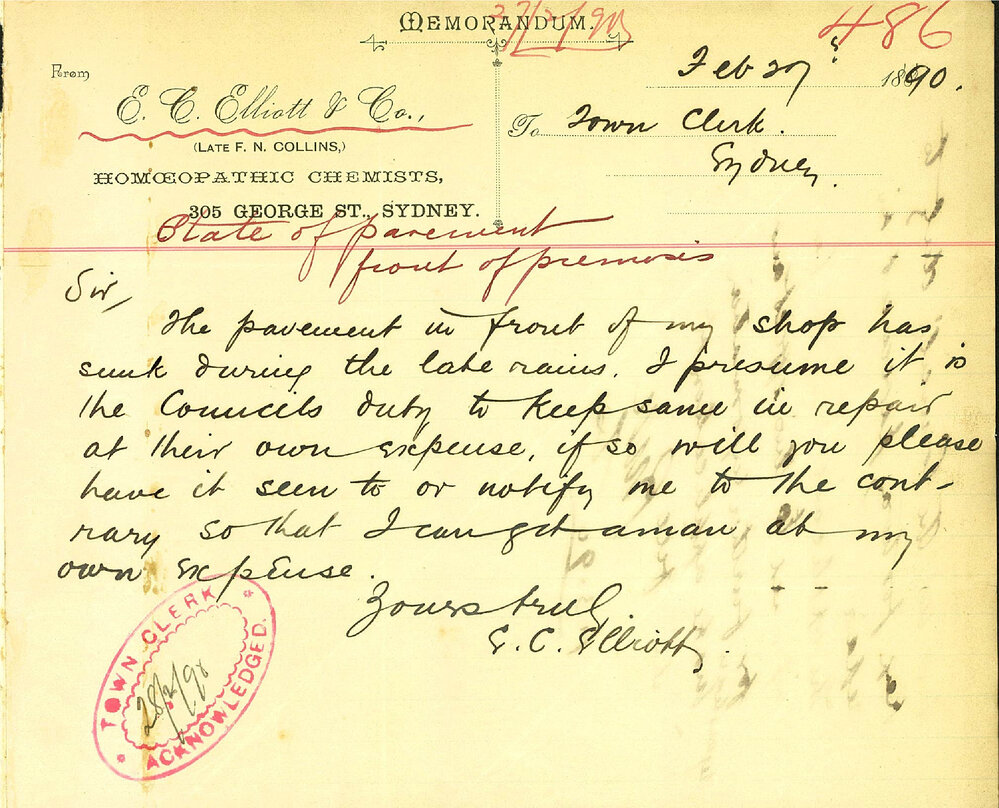 MEMORANDUM.
27/2/90
486
Feb 27 1890.
From
E. C. Elliott & Co.,
(LATE F. N. COLLINS,)
HOMŒOPATHIC CHEMISTS,
305 GEORGE ST., SYDNEY.
To Town Clerk.
Sydney.
State of pavement
front of premises
Sir,
The pavement in front of my shop has
sunk during the late rains. I presume it is
the Councils duty to keep same in repair
at their own expense, if so will you please
have it seen to or notify me to the cont-
rary so that I can get a man at my
own expense.
Yours truly
E. C. Elliott.
TOWN CLERK
28/2/90
ACKNOWLEDGED.